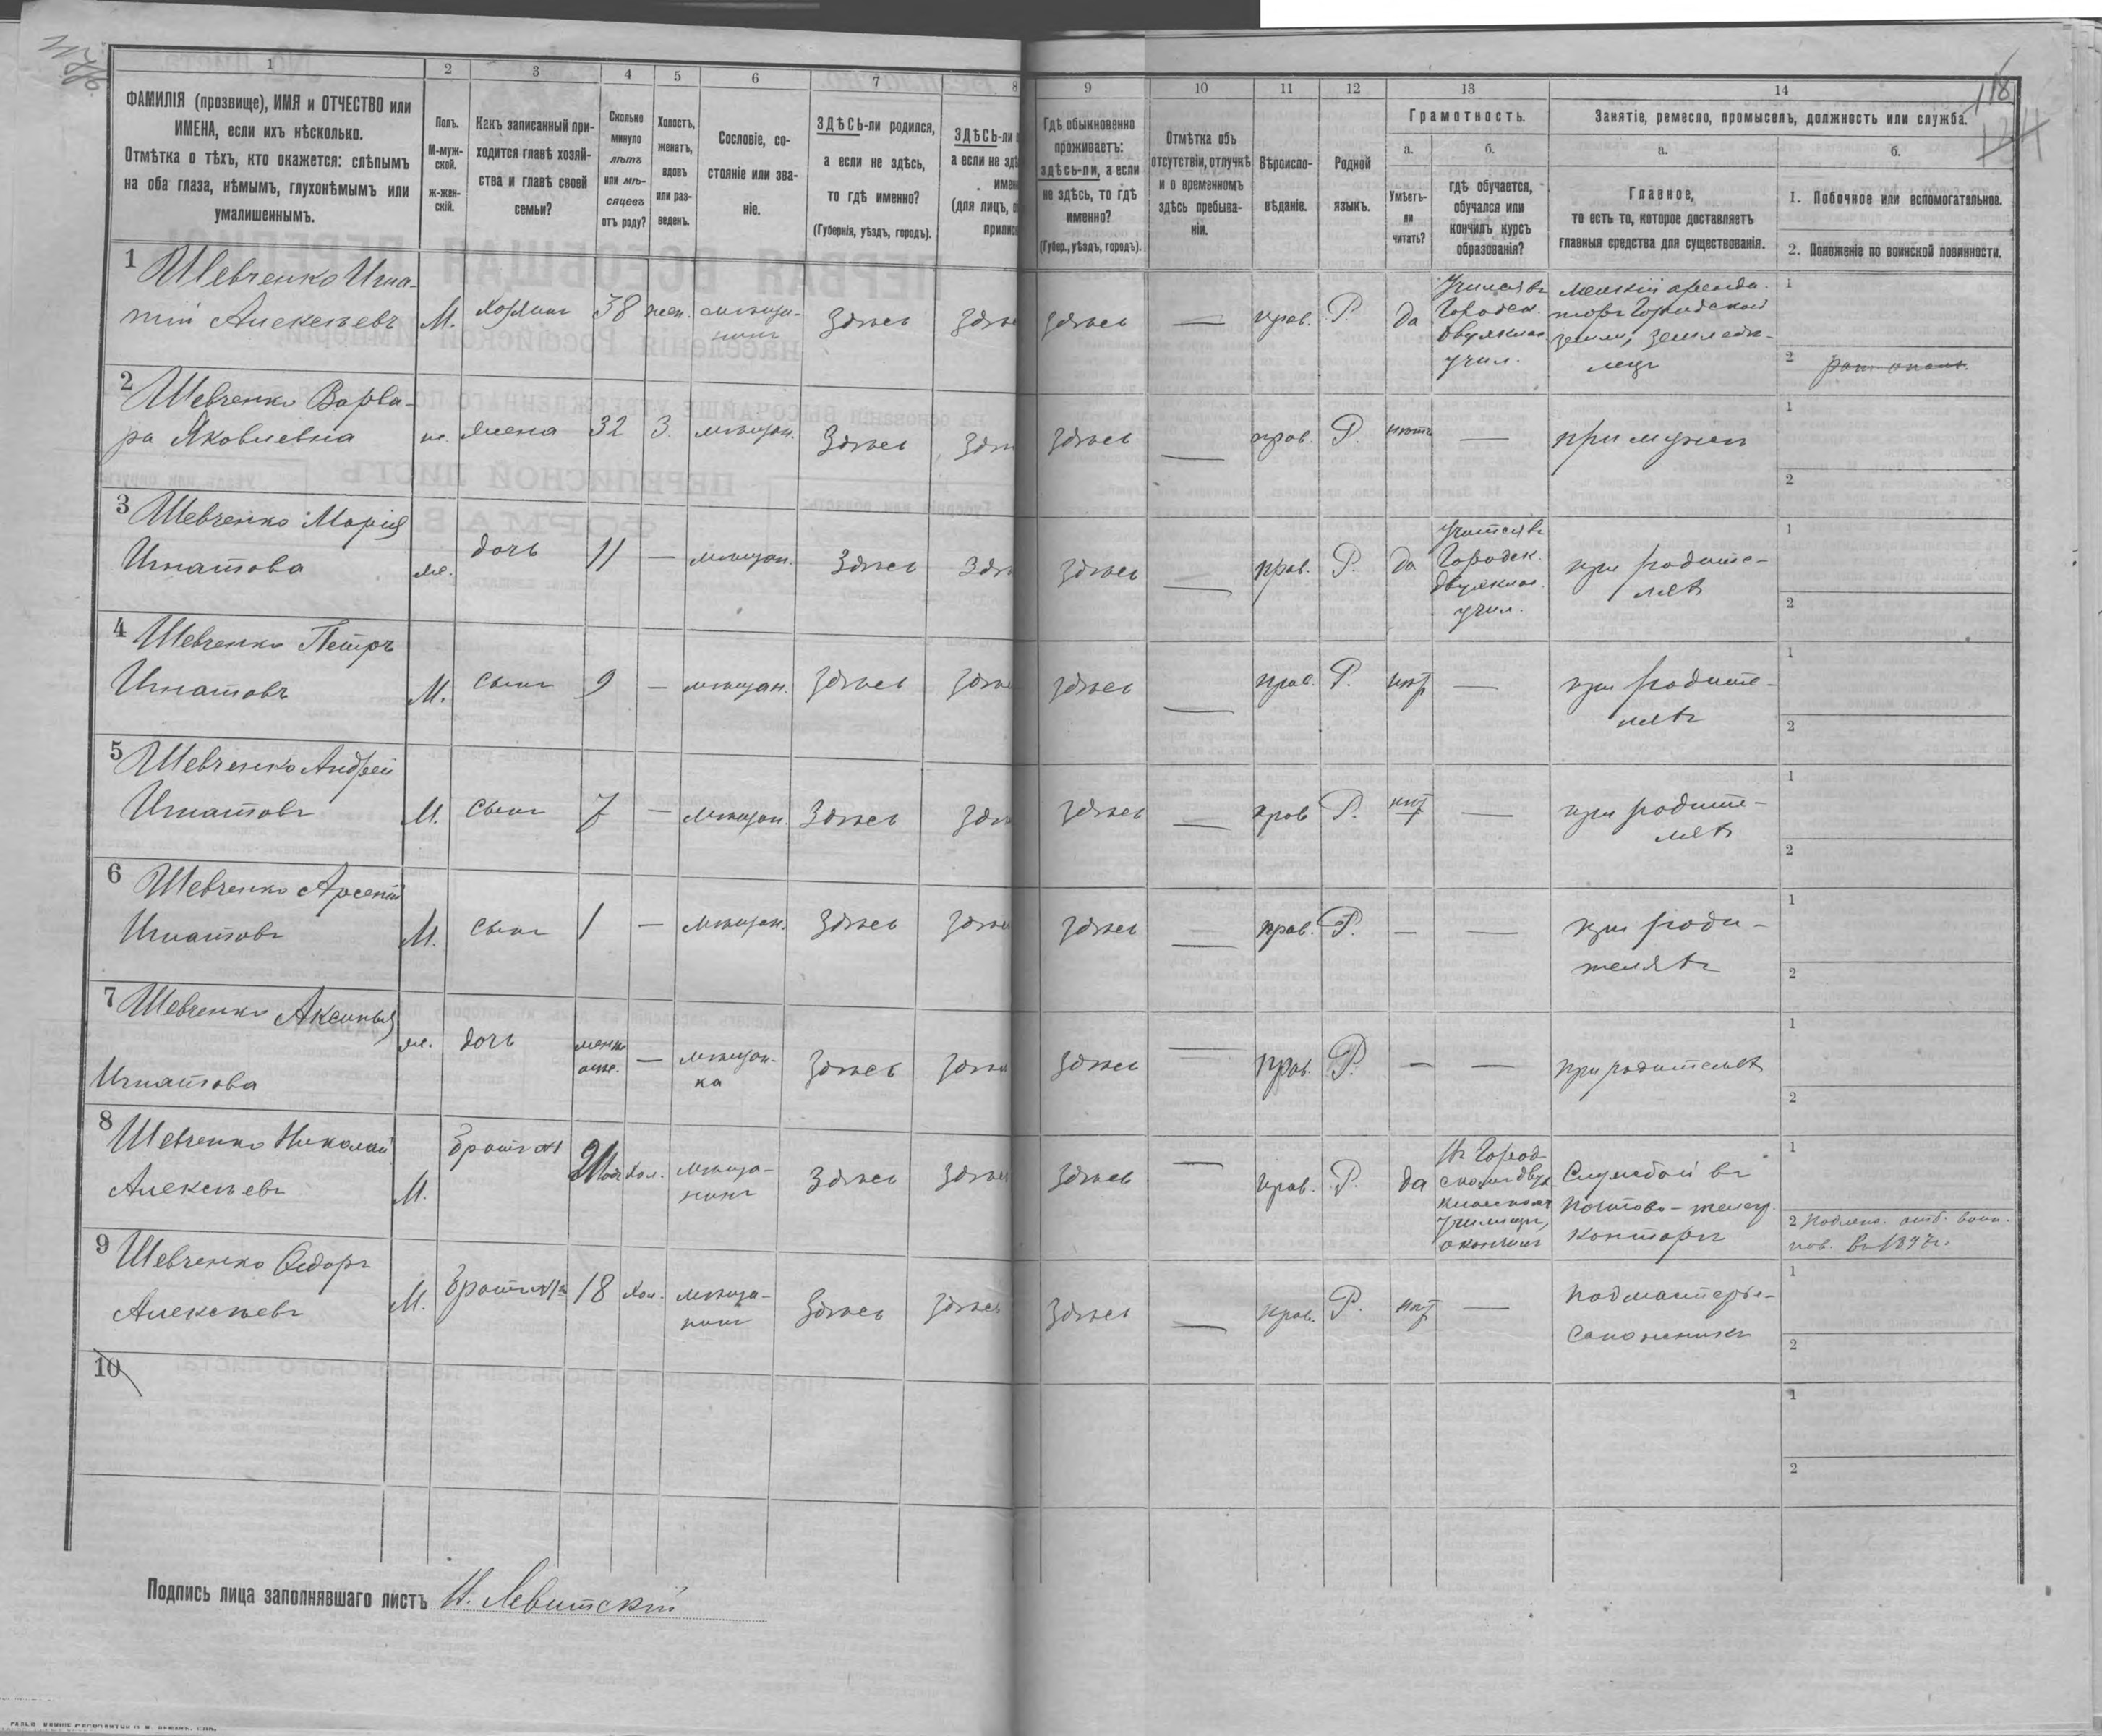 1 2 3 4 5 6 7 8 9 10 11 12 13 14
ФАМИЛІЯ (прозвище), ИМЯ и ОТЧЕСТВО или
ИМЕНА, если ихъ нѣсколько.
Отмѣтка о тѣхъ, кто окажется: слѣпымъ
на оба глаза, нѣмымъ, глухонѣмымъ или
умалишеннымъ.
Полъ.
М-муж-
ской.
Ж-жен-
скій.
Какъ записанный при-
ходится главѣ хозяй-
ства и главѣ своей
семьи?
Сколько
минуло
лѣтъ
или мѣ-
сяцевъ
отъ роду?
Холостъ,
женатъ,
вдовъ
или раз-
веденъ.
Сословіе, со-
стояніе или зва-
ніе.
ЗДѢСЬ-ли родился,
а если не здѣсь,
то гдѣ именно?
(Губернія, уѣздъ, городъ).
ЗДѢСЬ-ли
а если не здѣ
имен
(для лицъ,
припис
Гдѣ обыкновенно
проживаетъ:
здѣсь-ли, а если
не здѣсь, то гдѣ
именно?
(Губер., уѣздъ, городъ).
Отмѣтка объ
отсутствіи, отлучкѣ
и о временномъ
здѣсь пребыва-
ніи.
Вѣроиспо-
вѣданіе.
Родной
языкъ.
Грамотность.
а.
Умѣетъ-
ли
читать?
б.
гдѣ обучается,
обучался или
кончилъ курсъ
образованія?
Занятіе, ремесло, промыселъ, должность или служба.
а.
Главное,
то есть то, которое доставляетъ
главныя средства для существованія.
б.
1. Побочное или вспомогательное.
2. Положеніе по воинской повинности.
1 Шевченко Игна-
тій Алексѣевъ М. хозяинъ 38 жен. мѣща-
нинъ здѣсь здѣсь здѣсь — прав. Р. да
Учился въ
Городск.
двухклас.
учил.
мелкій аренда-
торъ Городской
земли, земледѣ-
лецъ
1
2
2 Шевченко Варва-
ра Яковлевна ж. жена 32 З. мѣщан. здѣсь здѣсь здѣсь — прав. Р. нѣтъ — при мужѣ
1
2
3 Шевченко Марія
Игнатова ж. дочь 11 — мѣщан. здѣсь здѣсь здѣсь — прав. Р. да
Учится въ
Городск.
двухклас.
учил.
при родите-
ляхъ
1
2
4 Шевченко Петръ
Игнатовъ М. сынъ 9 — мѣщан. здѣсь здѣсь здѣсь — прав. Р. нѣт — при родите-
ляхъ
1
2
5 Шевченко Андрей
Игнатовъ М. сынъ 7 — мѣщан. здѣсь здѣсь здѣсь — прав. Р. нѣт — при родите-
ляхъ
1
2
6 Шевченко Арсеній
Игнатовъ М. сынъ 1 — мѣщан. здѣсь здѣсь здѣсь — прав. Р. — — при роди-
теляхъ
1
2
7 Шевченко Аксинья
Игнатова ж. дочь — мѣщан-
ка здѣсь здѣсь здѣсь — прав. Р. — — при родителях
1
2
8 Шевченко Николай
Алексѣевъ М. братъ 21 хол. мѣща-
нинъ здѣсь здѣсь здѣсь — прав. Р. да
Службой въ
почтово-телегр.
конторѣ
1
2 Подлеж. отб. воин.
пов. въ 1897 г.
9 Шевченко Ѳедоръ
Алексѣевъ М. братъ 18 хол. мѣща-
нинъ здѣсь здѣсь здѣсь — прав. Р. нѣт — подмастерье-
сапожникъ
1
2
10
1
2
Подпись лица заполнявшаго листъ Н. Левитскій